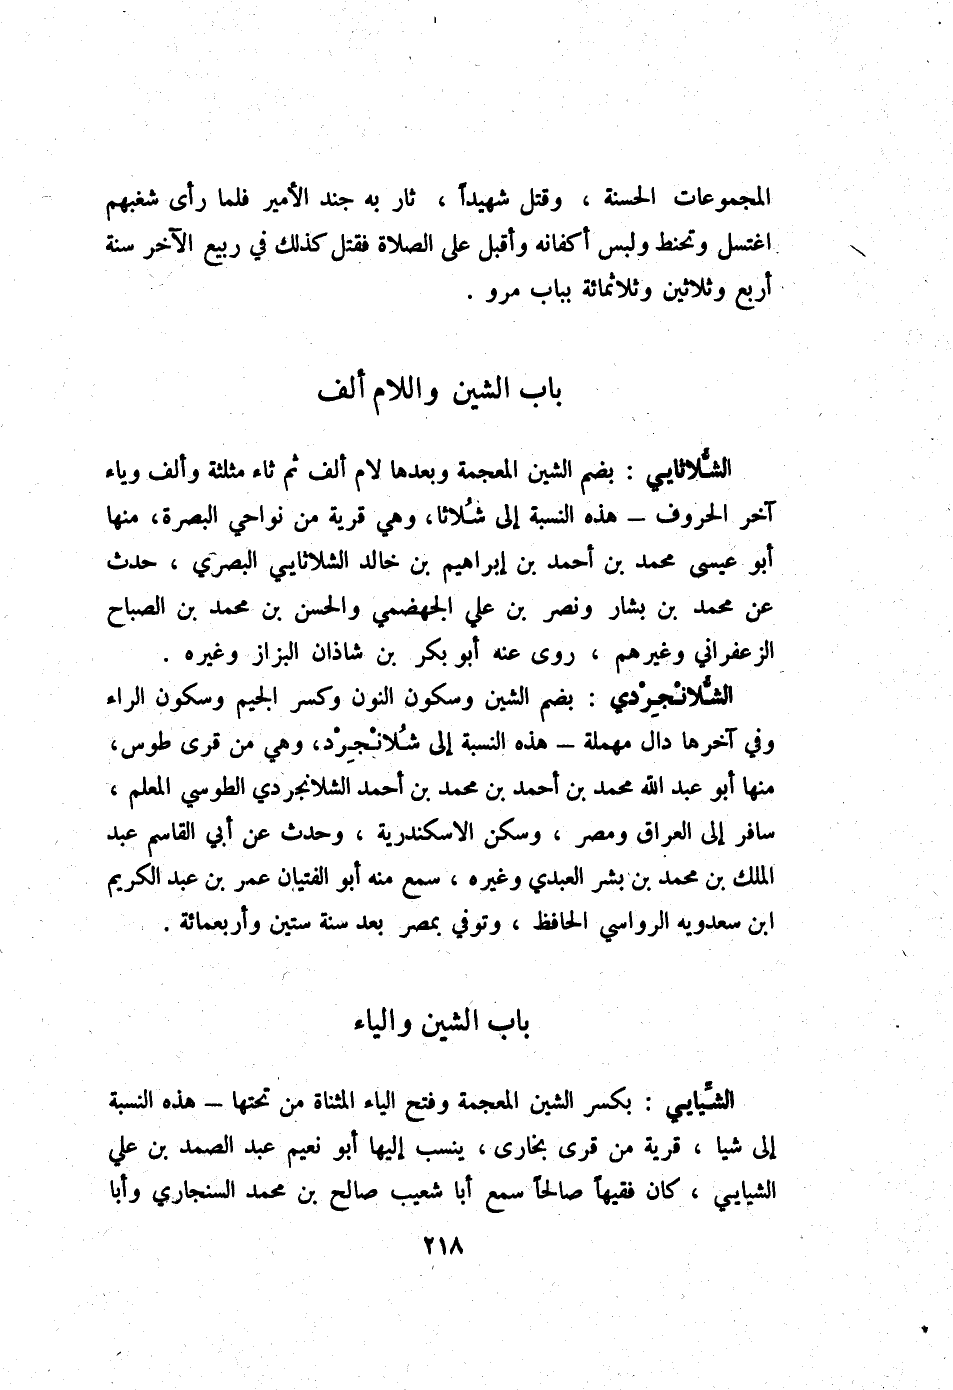 المجموعات الحسنة ، وقتل شهيداً ، ثار به جند الأمير فلما رأى شغبهم
اغتسل وتحنط ولبس أكفانه وأقبل على الصلاة فقتل كذلك في ربيع الآخر سنة
أربع وثلاثين وثلاثمائة بباب مرو .
باب الشين واللام ألف
الشُّلاثايي : بضم الشين المعجمة وبعدها لام ألف ثم ثاء مثلثة وألف وياء
آخر الحروف – هذه النسبة إلى شُلاثا، وهي قرية من نواحي البصرة، منها
أبو عيسى محمد بن أحمد بن إبراهيم بن خالد الشلاثايي البصري ، حدث
عن محمد بن بشار ونصر بن علي الجهضمي والحسن بن محمد بن الصباح
الزعفراني وغيرهم ، روى عنه أبو بكر بن شاذان البزاز وغيره .
الشُّلانْجِرْدي : بضم الشين وسكون النون وكسر الجيم وسكون الراء
وفي آخرها دال مهملة – هذه النسبة إلى شُلانْجِرْد، وهي من قرى طوس،
منها أبو عبد الله محمد بن أحمد بن محمد بن أحمد الشلانجردي الطوسي المعلم ،
سافر إلى العراق ومصر ، وسكن الاسكندرية ، وحدث عن أبي القاسم عبد
الملك بن محمد بن بشر العبدي وغيره ، سمع منه أبو الفتيان عمر بن عبد الكريم
ابن سعدويه الرواسي الحافظ ، وتوفي بمصر بعد سنة ستين وأربعمائة .
باب الشين والياء
الشِّيايي : بكسر الشين المعجمة وفتح الياء المثناة من تحتها – هذه النسبة
إلى شيا ، قرية من قرى بخارى ، ينسب إليها أبو نعيم عبد الصمد بن علي
الشيايي ، كان فقيهاً صالحاً سمع أبا شعيب صالح بن محمد السنجاري وأبا
٢١٨